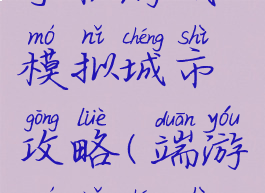 mó nǐ chéng shì
模拟城市
gōng lüè duān yóu
攻略(端游